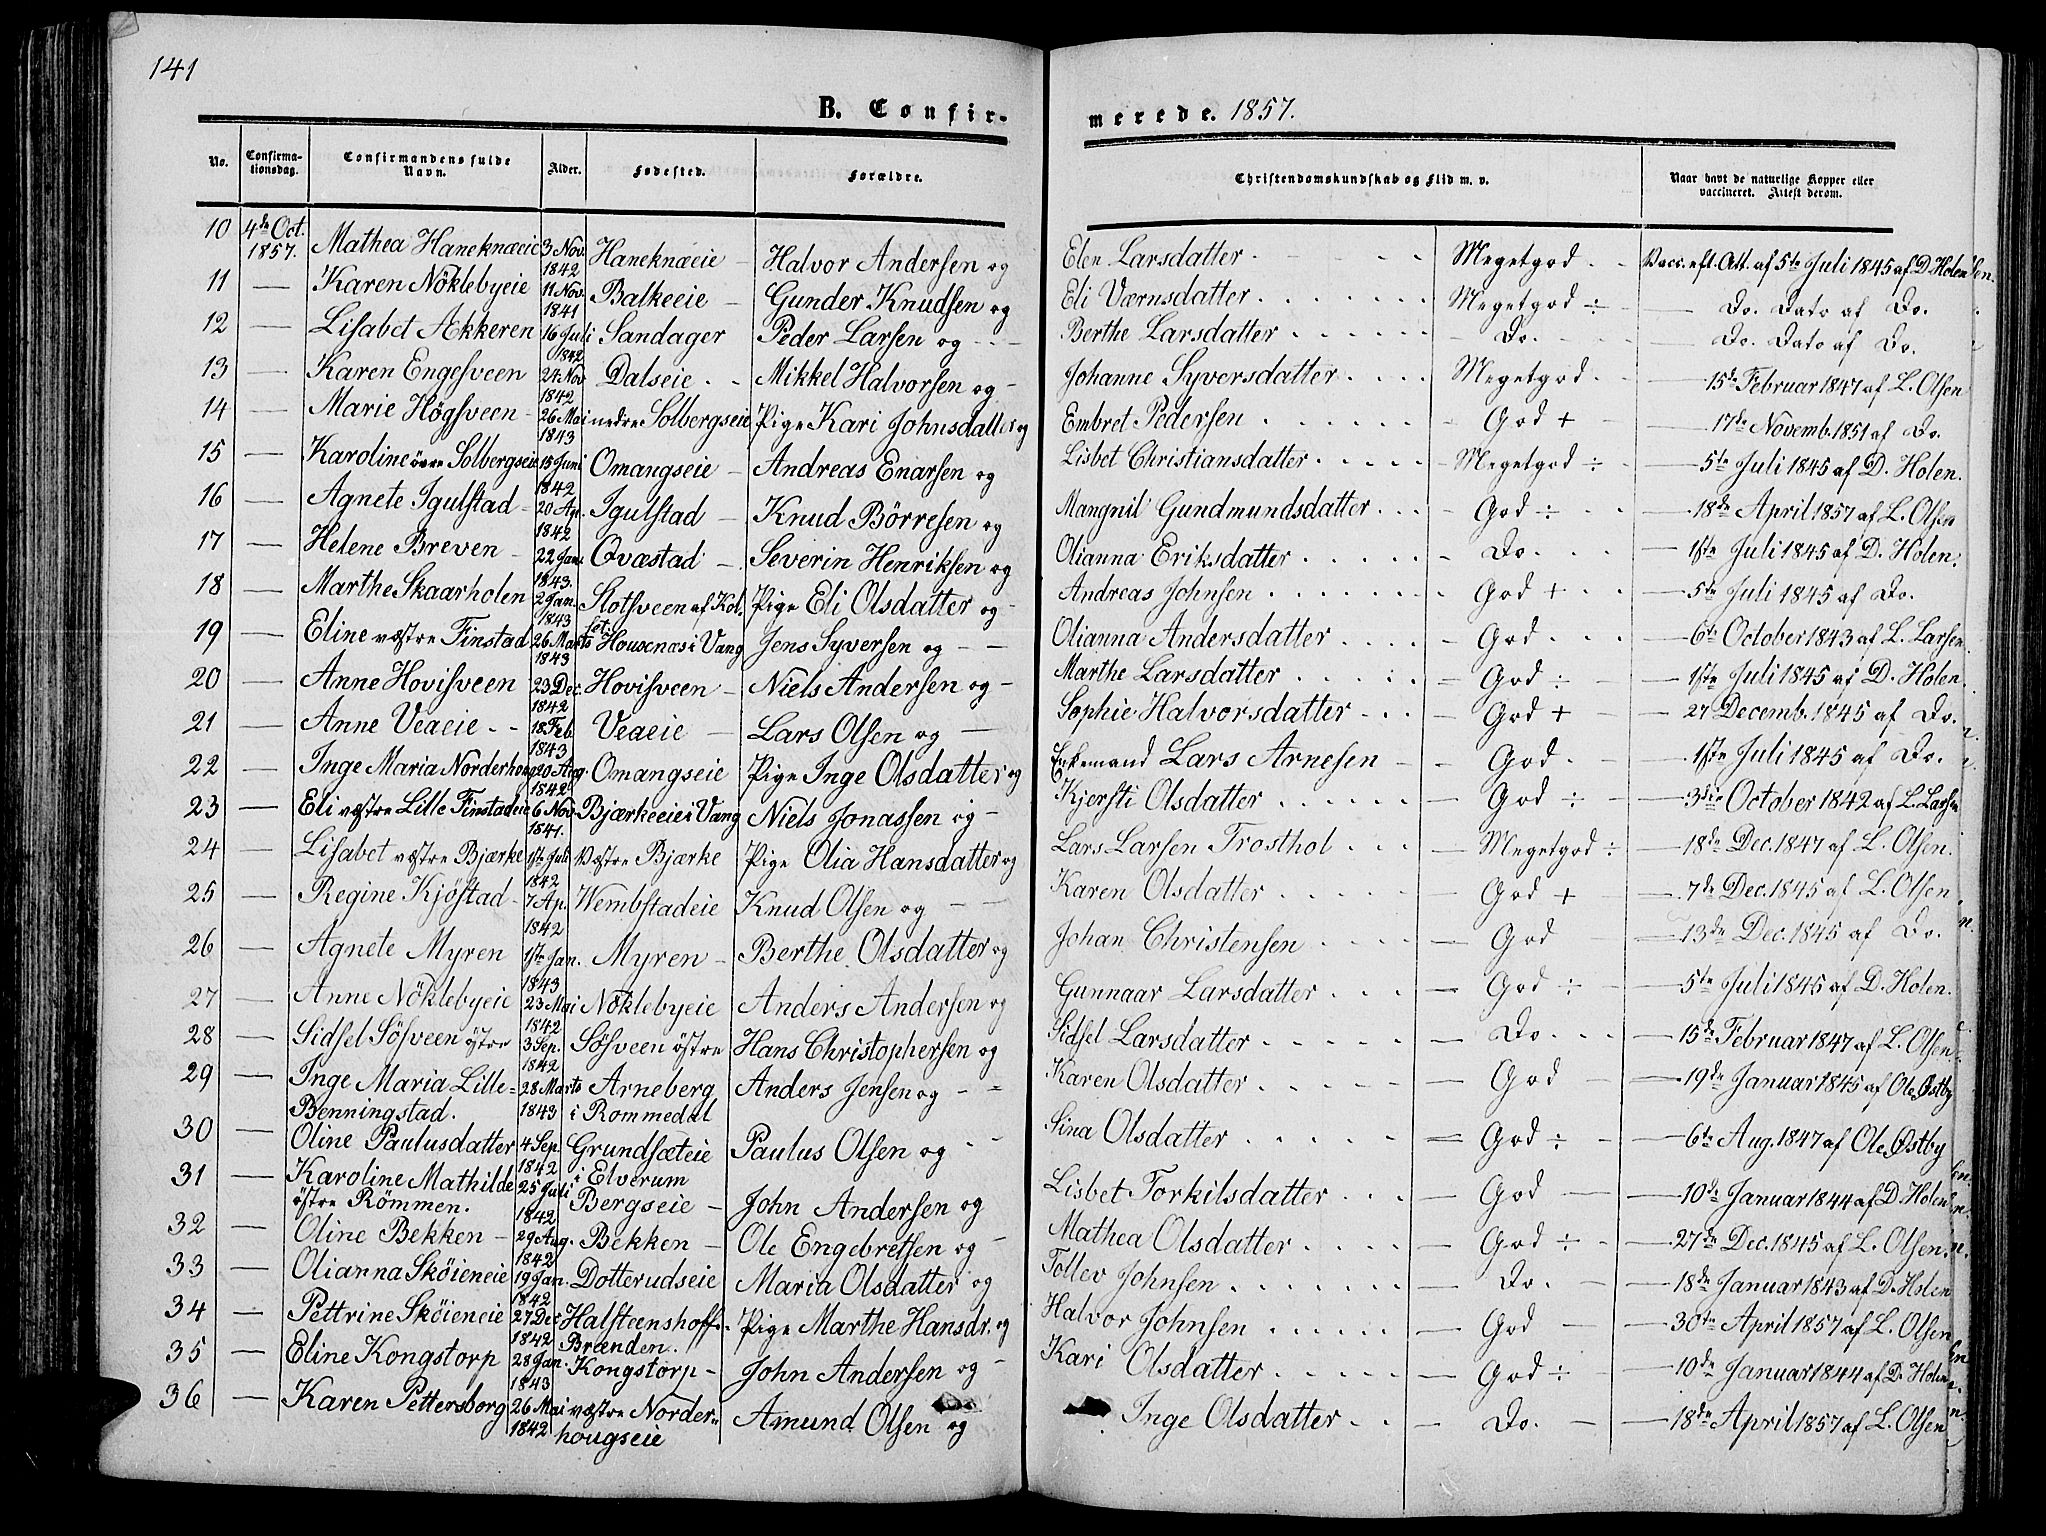 141
B. Confirmerede. 1857.
No. Confirmationsdag. Confirmandens fulde Navn. Alder. Fødested. Forældre. Christendomskundskab og Flid m. v. Naar havt de naturlige Kopper eller vaccineret. Attest derom.
10 4de Oct. 1857. Mathea Haneknæeie 3 Nov. 1842 Haneknæeie - Halvor Andersen og Elen Larsdatter Megetgod Vacc. eft. Att. af 5te Juli 1845 af D. Holen
11 — Karen Nöklebyeie 11 Nov. 1841 Balkeeie - Gunder Knudsen og Eli Værnsdatter Megetgod ÷ — Do. Dato af Do.
12 — Lisabet Ækkeren 16 Juli 1842 Sandager Peder Larsen og Berthe Larsdatter Do. — Do. Dato af Do.
13 — Karen Engesveen 24 Nov 1842 Dalseie Mikkel Halvorsen og Johanne Syversdatter Megetgod — 15de Februar 1847 af L. Olsen
14 — Marie Högsveen 26 Mai 1843 nedre Solbergseie Pige Kari Johnsdatter og Embret Pedersen God + — 17de Novemb. 1851 af Do.
15 — Karoline övre Solbergseie 15 Juni 1842 Omangseie - Andreas Enarsen og Lisbet Christiansdatter Megetgod ÷ — 5te Juli 1845 af D. Holen.
16 — Agnete Igulstad 20 Ap. 1842 Igulstad - Knud Börresen og Mangnil Gundmundsdatter God ÷ — 18de April 1857 af L. Olsen
17 — Helene Breven 22 Jan. 1843. Qvæstad - Severin Henriksen og Olianna Eriksdatter Do. — 1ste Juli 1845 af D. Holen.
18 — Marthe Skaarholen 2 Jan. 1843 Slotsveen af Kol. Pige Eli Olsdatter og Andreas Johnsen God + — 5te Juli 1845 af Do.
19 — Eline vestre Finstad 26 Marts 1843 Housenæs i Vang Jens Syversen og Olianna Andersdatter God — 6te October 1843 af L. Larsen.
20 — Anne Hovisveen 23 Dec. 1842 Hovisveen - Niels Andersen og Marthe Larsdatter God ÷ — 1ste Juli 1845 af D. Holen.
21 — Anne Veaeie 18 Feb 1843 Veaeie - Lars Olsen og Sophie Halvorsdatter God + — 27 Decemb. 1845 af Do.
22 — Inge Maria Norderhoug 20 Aug. 1842 Omangseie Pige Inge Olsdatter og Enkemand Lars Arnesen God — 1ste Juli 1845 af Do.
23 — Eli vestre Lille Finstadeie 6 Nov. 1841. Bjærkeeie i Vang Niels Jonassen og Kjersti Olsdatter God ÷ — 3die October 1842 af L. Larsen
24 — Lisabet vestre Bjærke 1ste Juli 1842 Vestre Bjærke Pige Olia Hansdatter og Lars Larsen Trosthol Megetgod ÷ — 18de Dec. 1847 af L. Olsen.
25 — Regine Kjöstad 7 Ap. 1842 Wembstadeie Knud Olsen og Karen Olsdatter God + — 7de Dec. 1845 af L. Olsen
26 — Agnete Myren 1ste Jan. 1843 Myren - Berthe Olsdatter og Johan Christensen God — 13de Dec. 1845 af Do.
27 — Anne Nöklebyeie 23 Mai 1842 Nöklebyeie Anders Andersen og Gunnaar Larsdatter God ÷ — 5te Juli 1845 af D. Holen.
28 — Sidsel Sösveen östre 3 Sep. 1842 Sösveen östre Hans Christophersen og Sidsel Larsdatter Do. — 15de Februar 1847 af L. Olsen
29 — Inge Maria Lille-Benningstad. 28 Marts 1843 Arneberg i Rommedal Anders Jensen og Karen Olsdatter God — 19de Januar 1845 af Ole Østby
30 — Oline Paulusdatter 4 Sep. 1842 Grundsæteie i Elverum Paulus Olsen og Sina Olsdatter God ÷ — 6te Aug. 1847 af Ole Østby
31 — Karoline Mathilde östre Römmen. 25 Juli 1842 Bergseie - John Andersen og Lisbet Torkilsdatter God — 10de Januar 1844 af D. Holen
32 — Oline Bekken 29 Aug. 1842 Bekken - Ole Engebretsen og Mathea Olsdatter God ÷ — 27de Dec. 1845 af L. Olsen.
33 — Olianna Sköieneie 19 Jan. 1842 Dotterudseie Maria Olsdatter og Tollev Johnsen Do. — 18de Januar 1843 af D. Holen
34 — Pettrine Sköieneie 27 Dec 1842 Halsteenshoff Brænden. Pige Marthe Hansdr. og Halvor Johnsen God — 30te April 1857 af L. Olsen
35 — Eline Kongstorp 28 Jan. 1843 Kongstorp - John Andersen og Kari Olsdatter God ÷ — 10de Januar 1844 af D. Holen
36 — Karen Pettersborg 26 Mai 1842 vestre Norderhougseie Amund Olsen og Inge Olsdatter Do. — 18de April 1857 af L. Olsen